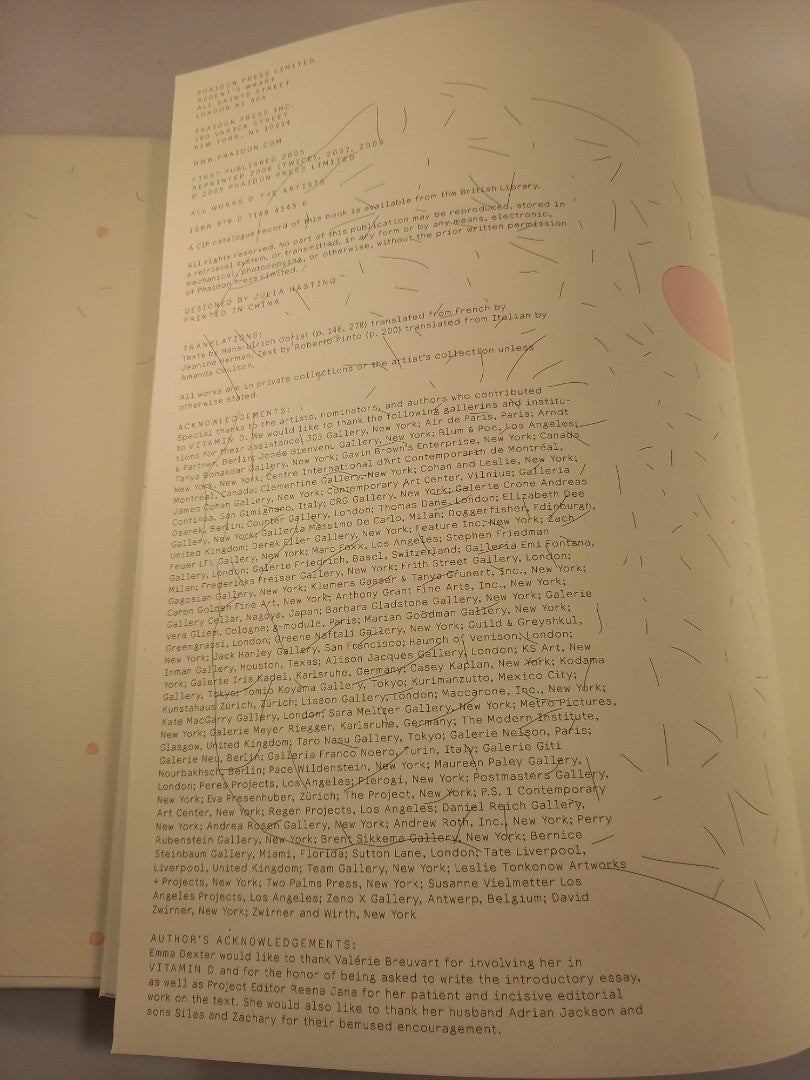 PHAIDON PRESS LIMITED
REGENT'S WHARF
ALL SAINTS STREET
LONDON N1 9PA
PHAIDON PRESS INC.
180 VARICK STREET
NEW YORK, NY 10014
WWW.PHAIDON.COM
FIRST PUBLISHED 2005
REPRINTED 2006 (TWICE), 2007, 2009
© 2005 PHAIDON PRESS LIMITED
ALL WORKS © THE ARTISTS
ISBN 978 0 7148 4545 6
A CIP catalogue record of this book is available from the British Library.
All rights reserved. No part of this publication may be reproduced, stored in
a retrieval system, or transmitted, in any form or by any means, electronic,
mechanical, photocopying, or otherwise, without the prior written permission
of Phaidon Press Limited.
DESIGNED BY JULIA HASTING
PRINTED IN CHINA
TRANSLATIONS:
Texts by Hans-Ulrich Obrist (p. 146, 278) translated from French by
Jeanine Herman. Text by Roberto Pinto (p. 200) translated from Italian by
Amanda Coulson.
All works are in private collections or the artist's collection unless
otherwise stated.
ACKNOWLEDGEMENTS:
Special thanks to the artists, nominators, and authors who contributed
to VITAMIN D. We would like to thank the following galleries and institu-
tions for their assistance: 303 Gallery, New York; Air de Paris, Paris; Arndt
& Partner, Berlin; Josée Bienvenu Gallery, New York; Blum & Poe, Los Angeles;
Tanya Bonakdar Gallery, New York; Gavin Brown's Enterprise, New York; Canada
New York, New York; Centre International d'Art Contemporain de Montréal,
Montreal, Canada; Clementine Gallery, New York; Cohan and Leslie, New York;
James Cohan Gallery, New York; Contemporary Art Center, Vilnius; Galleria
Continua, San Gimignano, Italy; CRG Gallery, New York; Galerie Crone Andreas
Osarek, Berlin; Counter Gallery, London; Thomas Dane, London; Elizabeth Dee
Gallery, New York; Galleria Massimo De Carlo, Milan; Doggerfisher, Edinburgh,
United Kingdom; Derek Eller Gallery, New York; Feature Inc, New York; Zach
Feuer LFL Gallery, New York; Marc Foxx, Los Angeles; Stephen Friedman
Gallery, London; Galerie Friedrich, Basel, Switzerland; Galleria Emi Fontana,
Milan; Fredericks Freiser Gallery, New York; Frith Street Gallery, London;
Gagosian Gallery, New York; Klemens Gasser & Tanya Grunert, Inc., New York;
Caren Golden Fine Art, New York; Anthony Grant Fine Arts, Inc., New York;
Gallery Cellar, Nagoya, Japan; Barbara Gladstone Gallery, New York; Galerie
Vera Gliem, Cologne; g-module, Paris; Marian Goodman Gallery, New York;
Greengrassi, London; Greene Naftali Gallery, New York; Guild & Greyshkul,
New York; Jack Hanley Gallery, San Francisco; Haunch of Venison, London;
Inman Gallery, Houston, Texas; Alison Jacques Gallery, London; KS Art, New
York; Galerie Iris Kadel, Karlsruhe, Germany; Casey Kaplan, New York; Kodama
Gallery, Tokyo; Tomio Koyama Gallery, Tokyo; Kurimanzutto, Mexico City;
Kunstahaus Zürich, Zürich; Lisson Gallery, London; Maccarone, Inc., New York;
Kate MacGarry Gallery, London; Sara Meltzer Gallery, New York; Metro Pictures,
New York; Galerie Meyer Riegger, Karlsruhe, Germany; The Modern Institute,
Glasgow, United Kingdom; Taro Nasu Gallery, Tokyo; Galerie Nelson, Paris;
Galerie Neu, Berlin; Galleria Franco Noero, Turin, Italy; Galerie Giti
Nourbakhsch, Berlin; Pace Wildenstein, New York; Maureen Paley Gallery,
London; Peres Projects, Los Angeles; Pierogi, New York; Postmasters Gallery,
New York; Eva Presenhuber, Zürich; The Project, New York; P.S. 1 Contemporary
Art Center, New York; Reger Projects, Los Angeles; Daniel Reich Gallery,
New York; Andrea Rosen Gallery, New York; Andrew Roth, Inc., New York; Perry
Rubenstein Gallery, New York; Brent Sikkema Gallery, New York; Bernice
Steinbaum Gallery, Miami, Florida; Sutton Lane, London; Tate Liverpool,
Liverpool, United Kingdom; Team Gallery, New York; Leslie Tonkonow Artworks
+ Projects, New York; Two Palms Press, New York; Susanne Vielmetter Los
Angeles Projects, Los Angeles; Zeno X Gallery, Antwerp, Belgium; David
Zwirner, New York; Zwirner and Wirth, New York
AUTHOR'S ACKNOWLEDGEMENTS:
Emma Dexter would like to thank Valérie Breuvart for involving her in
VITAMIN D and for the honor of being asked to write the introductory essay,
as well as Project Editor Reena Jana for her patient and incisive editorial
work on the text. She would also like to thank her husband Adrian Jackson and
sons Silas and Zachary for their bemused encouragement.